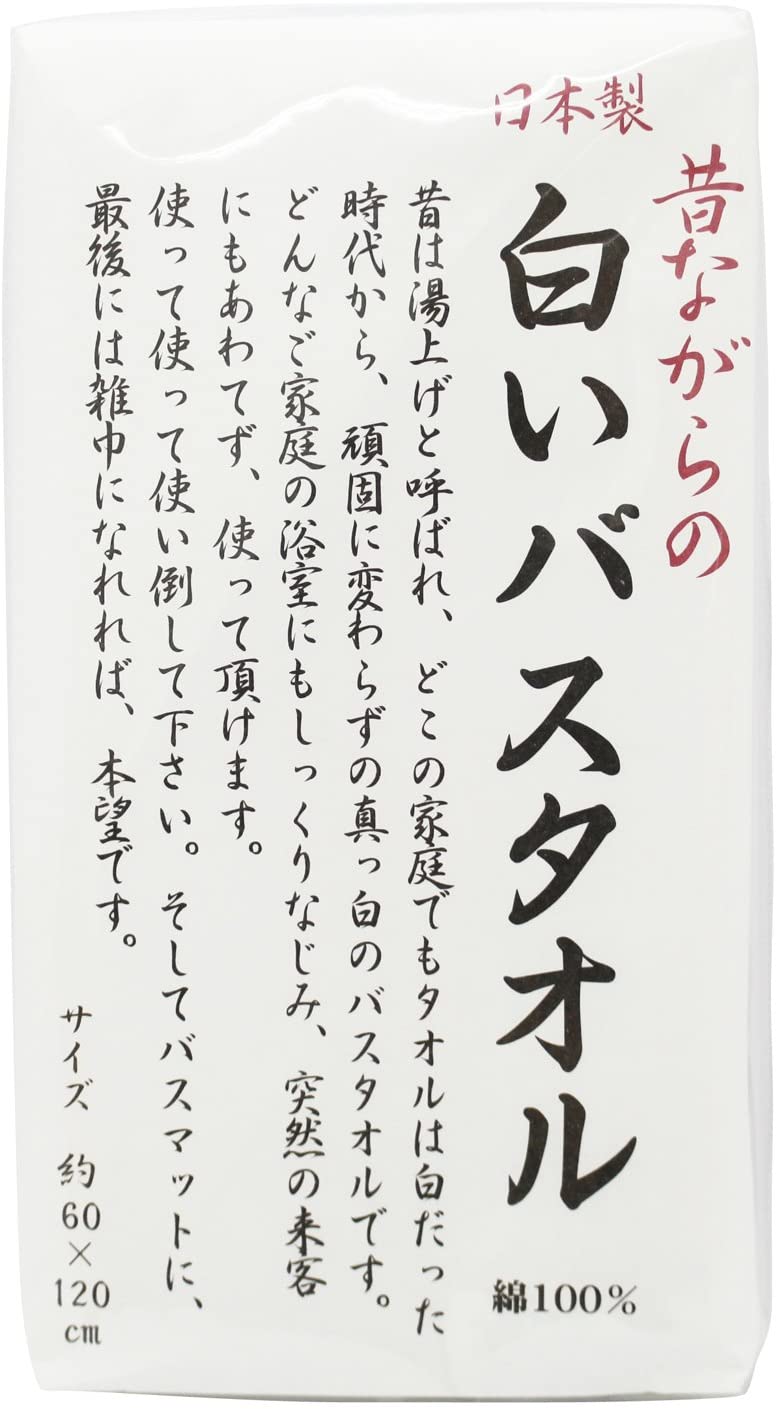 日本製
昔ながらの
白いバスタオル
綿100%
昔は湯上げと呼ばれ、どこの家庭でもタオルは白だった
時代から、頑固に変わらずの真っ白のバスタオルです。
どんなご家庭の浴室にもしっくりなじみ、突然の来客
にもあわてず、使って頂けます。
使って使って使い倒して下さい。そしてバスマットに、
最後には雑巾になれれば、本望です。
サイズ 約60×120cm